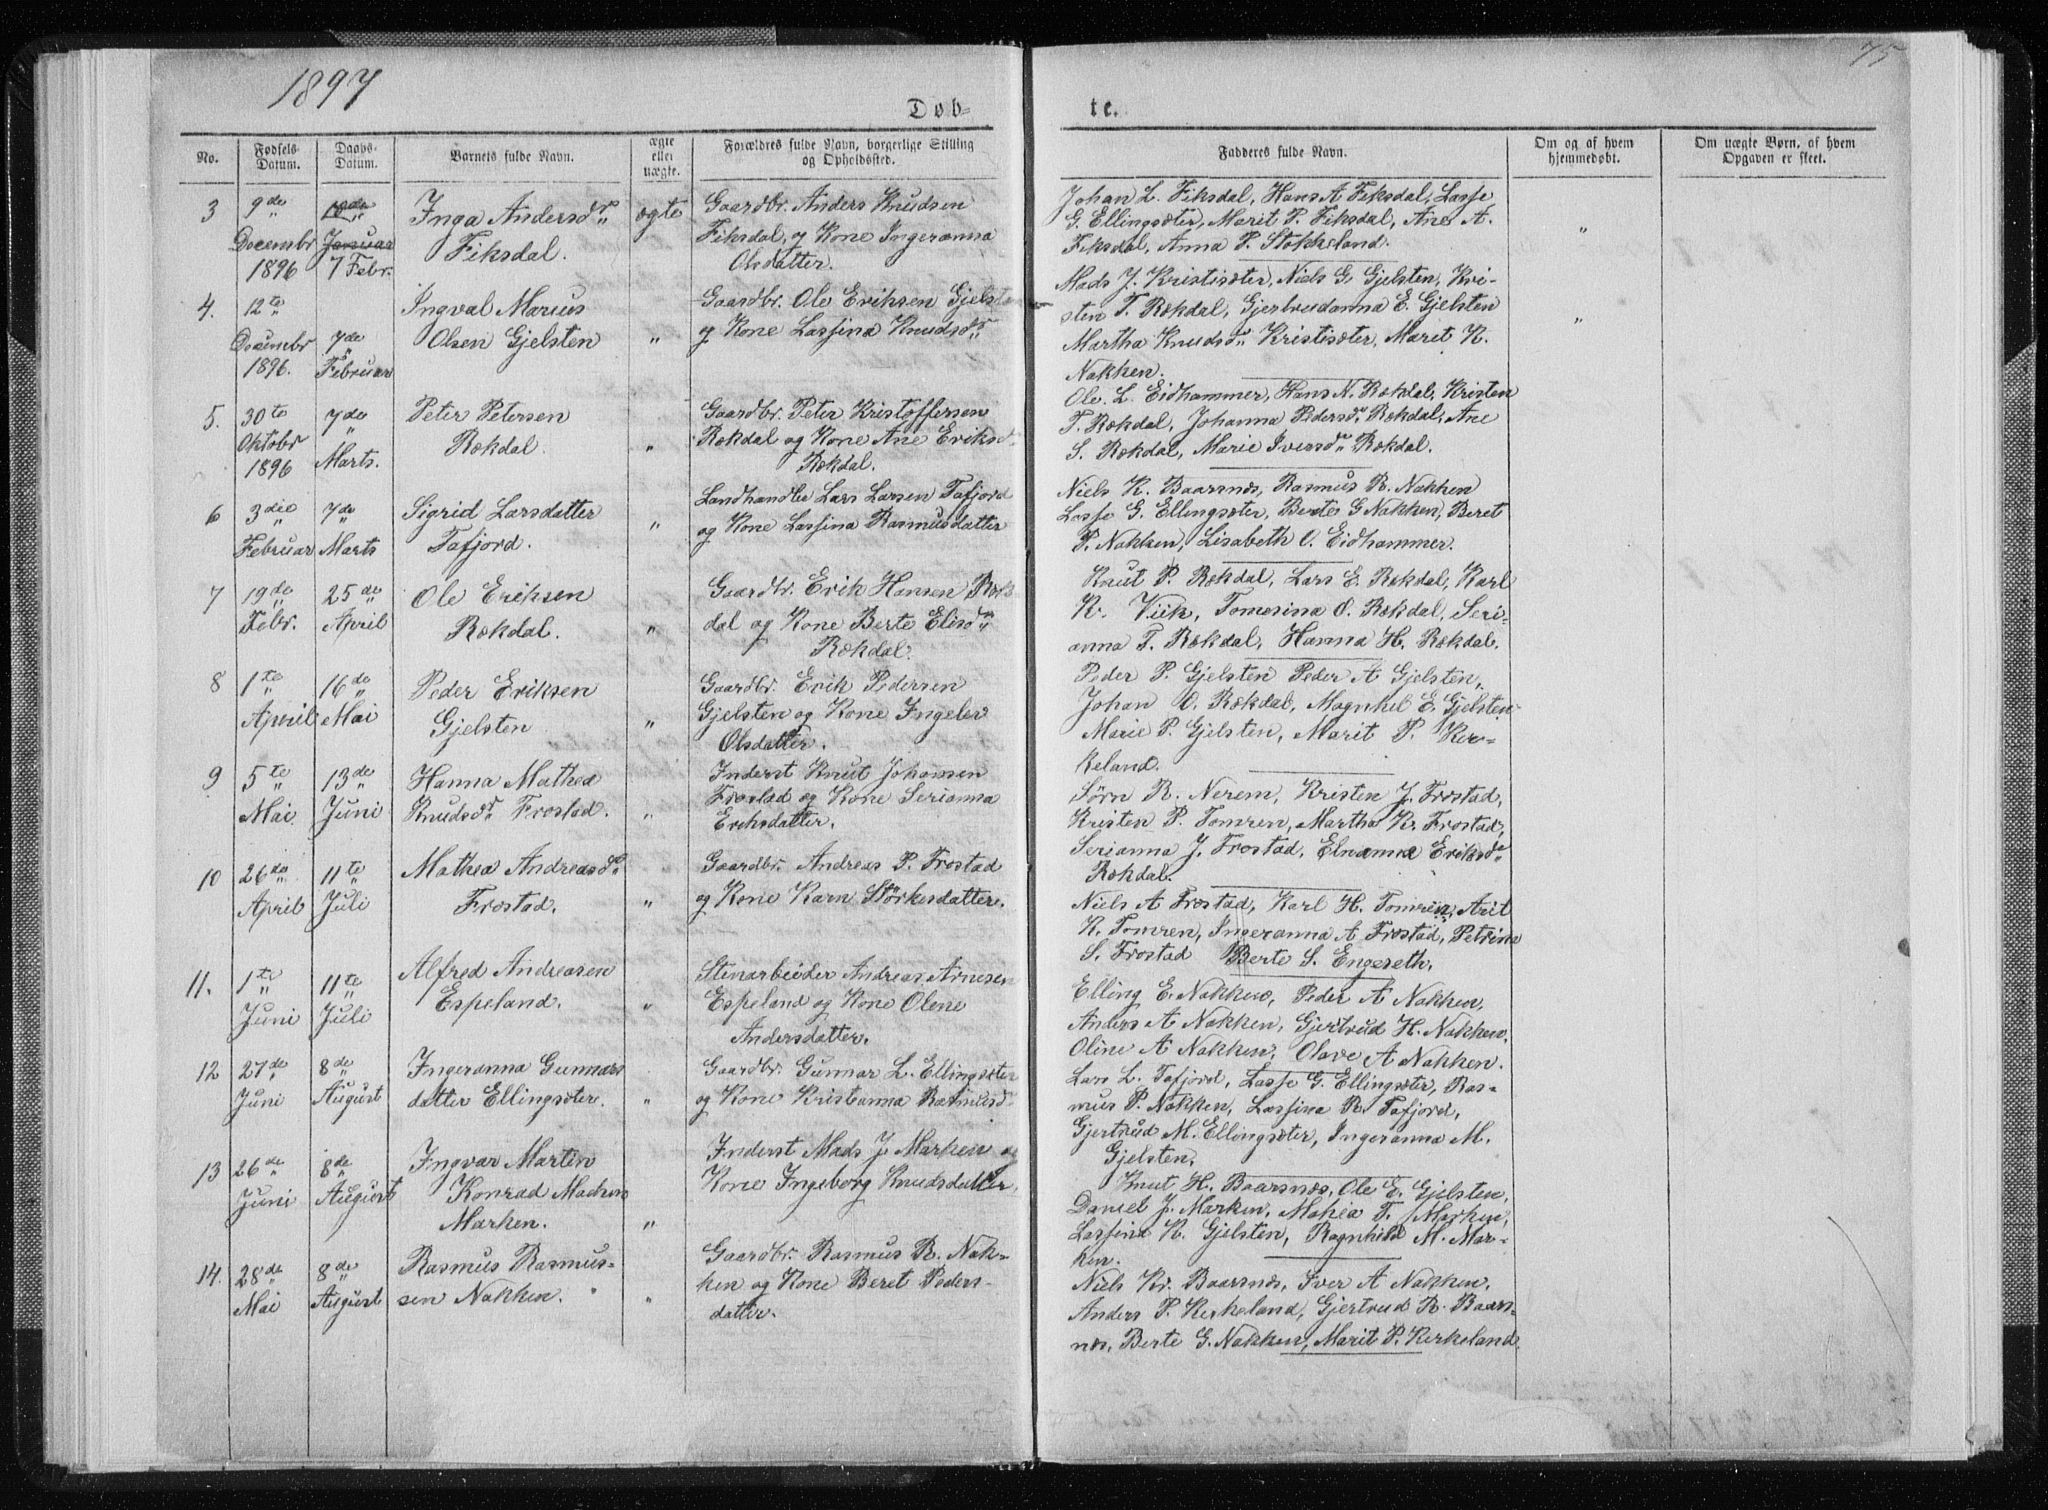 1897
75
Døb-
te.
No.
Fødsels-
Datum.
Daabs-
Datum.
Barnets fulde Navn.
ægte
eller
uægte.
Forældres fulde Navn, borgerlige Stilling
og Opholdssted.
Faddernes fulde Navn.
Om og af hvem
hjemmedøbt.
Om uægte Børn, af hvem
Opgaven er skeet.
3
9de
Decembr
1896
10de
Januar
7 Febr.
Inga Andersdr
Fiksdal.
ægte
Gaardbr. Anders Knudsen
Fiksdal, og Kone Ingeranna
Olsdatter.
Johan L. Fiksdal, Hans A Fiksdal, Lasse
G. Ellingsæter, Marit P. Fiksdal, Ane A.
Fiksdal, Anna P. Stokkeland.
"
4.
12te
Decembr
1896.
7de
Februar
Ingval Marius
Olsen Gjelsten
"
Gaardbr. Ole Eriksen Gjelsten
og Kone Lassina Knudsdr
Mads J. Kristisæter, Niels G. Gjelsten, Kri-
sten T. Rækdal, Gjertrudanna E. Gjelsten
Martha Knudsdr Kristisæter, Marit K.
Nakken.
"
5.
30te
Oktobr
1896
7de
Marts.
Peter Petersen
Rækdal.
"
Gaardbr. Peter Kristoffersen
Rækdal og Kone Ane Eriksd.
Rækdal.
Ole L. Eidhammer, Hans N. Rækdal, Kristen
T. Rækdal, Johanna Pedersdr Rækdal, Ane
S. Rækdal, Marie Iversdr Rækdal.
6
3die
Februar
7de
Marts
Sigrid Larsdatter
Tafjord.
"
Landhandler Lars Larsen Tafjord
og Kone Lassina Rasmusdatter
Niels K. Baarsnæs, Rasmus R. Nakken
Lasse G. Ellingsæter, Berte G Nakken, Beret
P. Nakken, Lisabeth O. Eidhammer.
7
19de
Febr.
25de
April
Ole Eriksen
Rækdal.
"
Gaardbr. Erik Hansen Ræk
dal og Kone Berte Elisdr
Rækdal.
Knut P. Rækdal, Lars E. Rækdal, Karl
K. Viik, Tomesina O. Rækdal, Seri-
anna T. Rækdal, Hanna H. Rækdal.
8
1te
April
16de
Mai
Peder Eriksen
Gjelsten
"
Gaardbr. Erik Pedersen
Gjelsten og Kone Ingelev
Olsdatter.
Peder P. Gjelsten Peder A Gjelsten,
Johan O. Rækdal, Magnhel E. Gjelsten
Marie P. Gjelsten, Marit P. Ker-
keland.
9
5te
Mai
13de
Juni
Hanna Mathea
Knudsdr Frostad.
"
Inderst Knut Johansen
Frostad og Kone Serianna
Eriksdatter.
Sørn R. Nerem, Kristen J. Frostad,
Kristen P. Tomren, Martha Kr. Frostad,
Serianna J. Frostad, Elnanna Eriksdr
Rækdal.
10
26de
April
11te
Juli
Mathea Andreasdr
Frostad.
"
Gaardbr. Andreas P. Frostad
og Kone Karn Størkesdatter.
Niels A Frostad, Karl H. Tomren, Arit
K. Tomren, Ingeranna A Frostad, Petrina
S. Frostad Berte S. Engeseth.
11.
1te
Juni
11te
Juli
Alfred Andreasen
Espeland.
"
Stenarbeider Andreas Arnesen
Espeland og Kone Olene
Andersdatter.
Elling E. Nakken, Peder A Nakken,
Anders A Nakken, Gjertrud H. Nakken,
Oline A Nakken, Olave A Nakken.
12
27de
Juni
8de
August
Ingeranna Gunnars
datter Ellingsæter.
"
Gaardbr. Gunnar L. Ellingsæter
og Kone Kristianna Rasmusd
Lars L. Tafjord, Lasse G. Ellingsæter, Ras-
mus P. Nakken, Lassina R. Tafjord,
Gjertrud M. Ellingsæter, Ingeranna M.
Gjelsten.
13
26de
Juni
8de
August
Ingvar Marten
Konrad Madsen
Marken.
"
Inderst Mads J. Marken og
Kone Ingeborg Knudsdatter.
Knut H. Baarsnæs, Ole E. Gjelsten,
Daniel J. Marken, Mahea T. Marken,
Lassina K. Gjelsten, Ragnhild M. Mar-
ken.
14.
28de
Mai
8de
August
Rasmus Rasmus-
sen Nakken.
"
Gaardbr. Rasmus R. Nak-
ken og Kone Beret Peders-
datter.
Niels Kr. Baarsnæs, Iver A Nakken,
Anders P. Kerkeland, Gjertrud R. Baars-
næs, Berte G. Nakken, Marit P. Kerkeland.